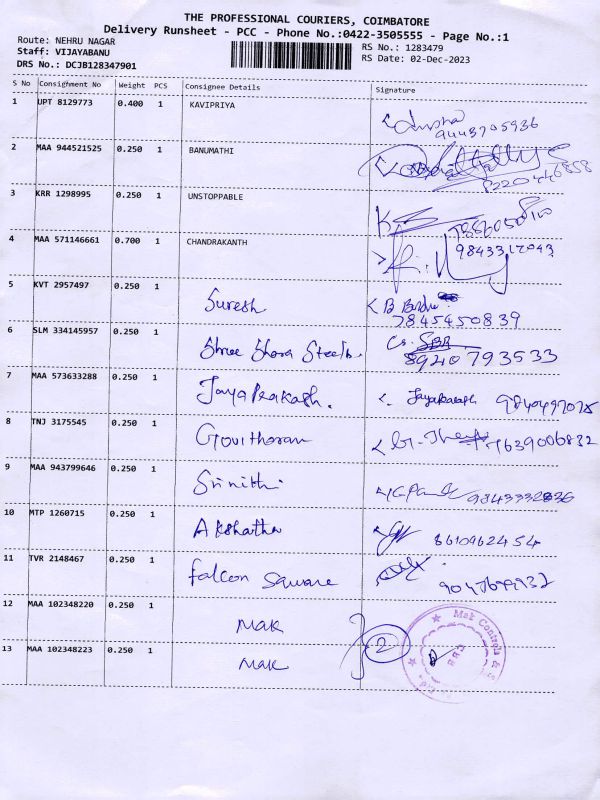 THE PROFESSIONAL COURIERS, COIMBATORE
Delivery Runsheet - PCC - Phone No.:0422-3505555 - Page No.:1
Route: NEHRU NAGAR
RS No.: 1283479
Staff: VIJAYABANU
RS Date: 02-Dec-2023
DRS No.: DCJB128347901
S No Consignment No Weight PCS Consignee Details Signature
1 UPT 8129773 0.400 1 KAVIPRIYA
9443705936
2 MAA 944521525 0.250 1 BANUMATHI
3 KRR 1298995 0.250 1 UNSTOPPABLE
4 MAA 571146661 0.700 1 CHANDRAKANTH 9843317043
5 KVT 2957497 0.250 1 Suresh
7845450839
6 SLM 334145957 0.250 1 Shree Bhara Steels
8940793533
7 MAA 573633288 0.250 1 JayaPrakash. Jayaprakash
8 TNJ 3175545 0.250 1 Govitharan 7639006832
9 MAA 943799646 0.250 1 Srinithi
10 MTP 1260715 0.250 1 Akshatha
11 TVR 2148467 0.250 1 Falcon Square
12 MAA 102348220 0.250 1 MAK
2
13 MAA 102348223 0.250 1 MAK
Mak Controls &